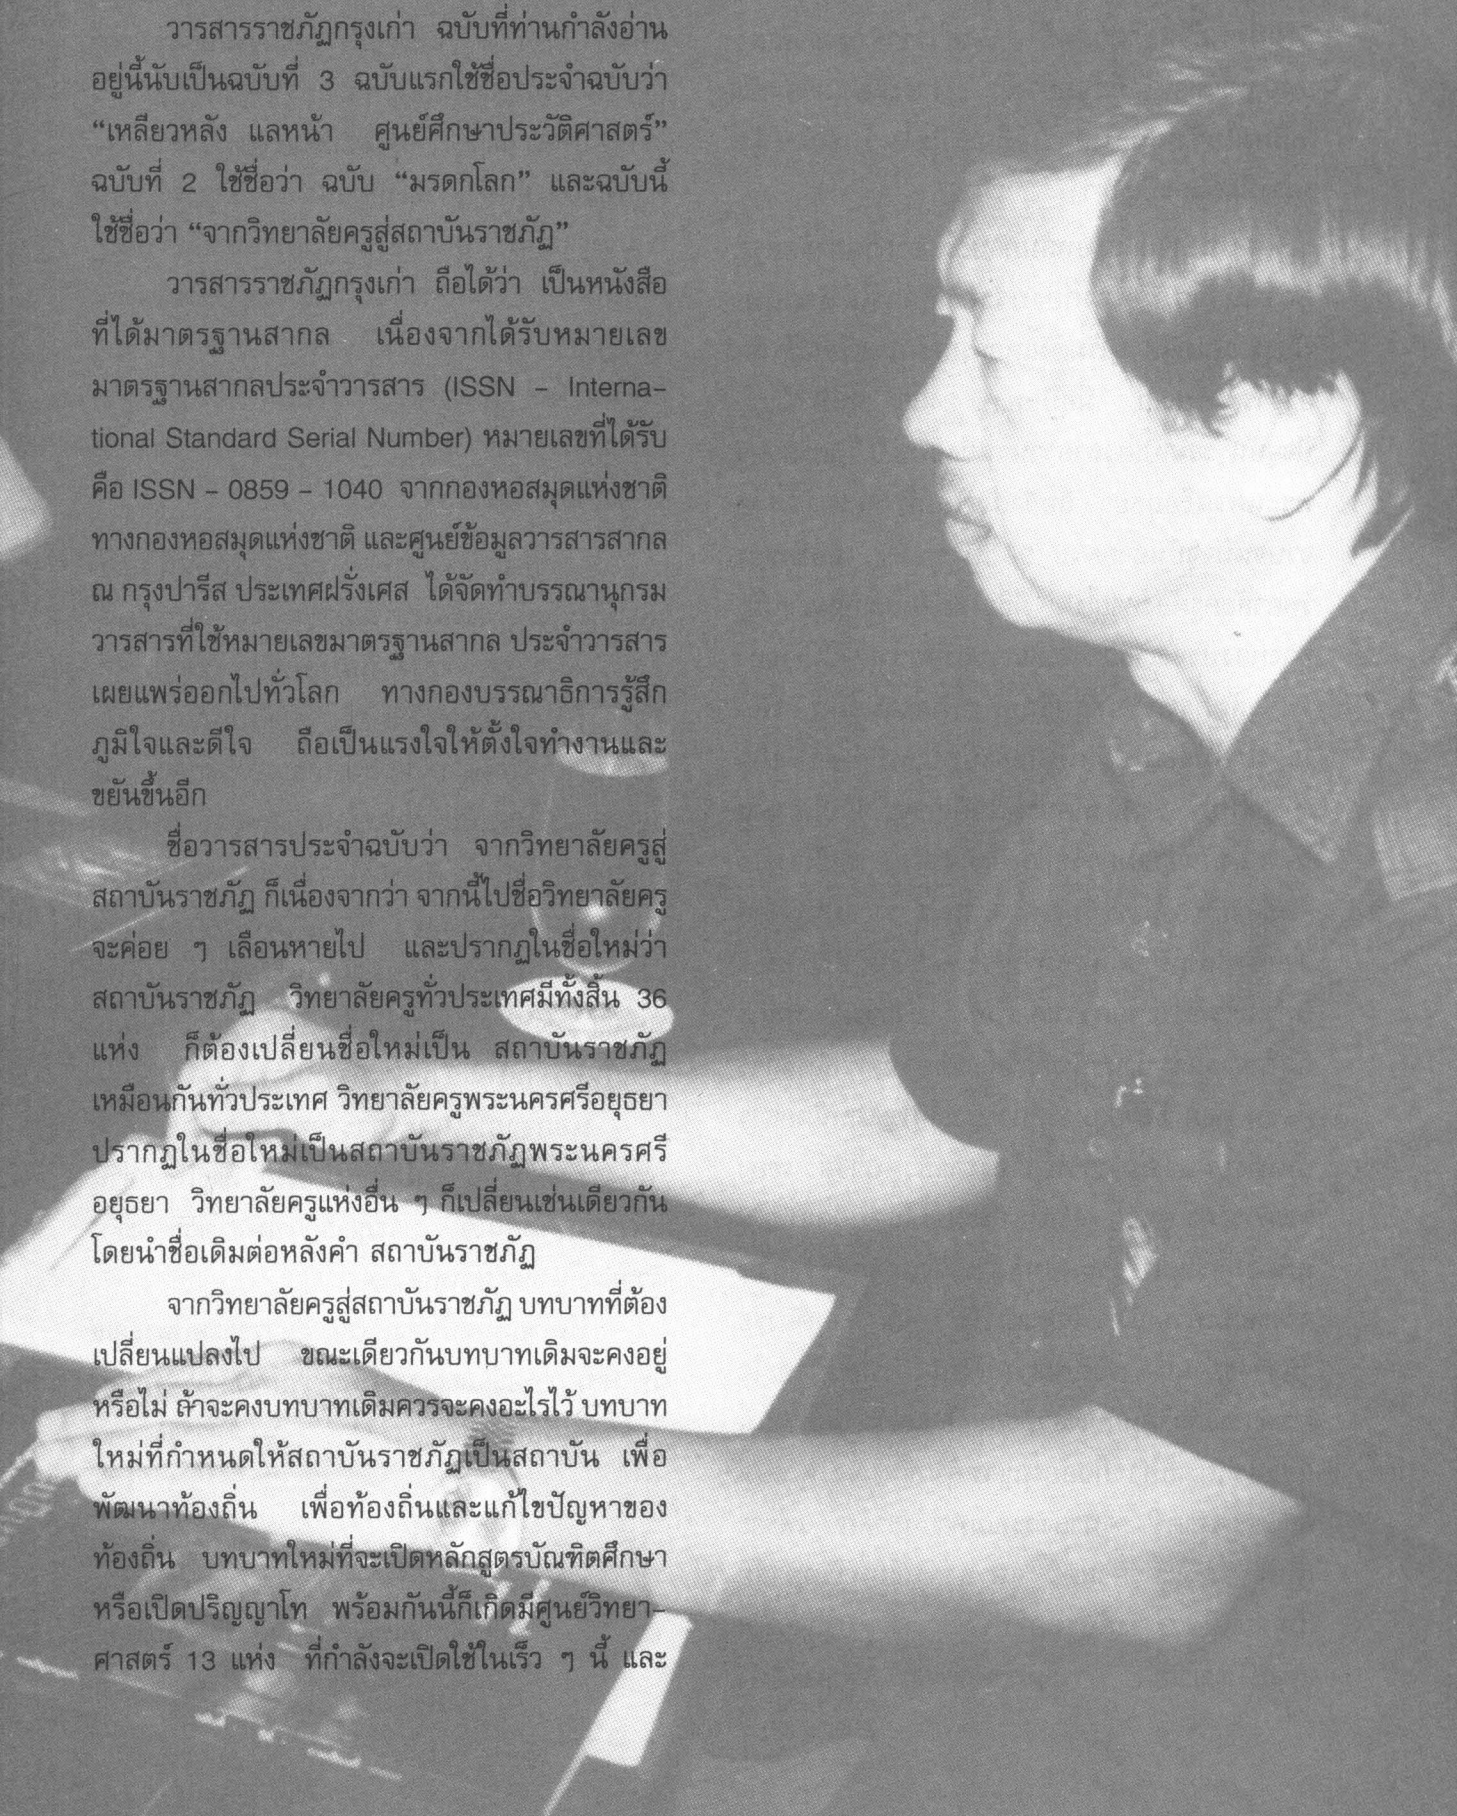 วารสารราชภัฏกรุงเก่า ฉบับที่ท่านกำลังอ่าน
อยู่นี้นับเป็นฉบับที่ 3 ฉบับแรกใช้ชื่อประจำฉบับว่า
“เหลียวหลัง แลหน้า ศูนย์ศึกษาประวัติศาสตร์”
ฉบับที่ 2 ใช้ชื่อว่า ฉบับ “มรดกโลก” และฉบับนี้
ใช้ชื่อว่า “จากวิทยาลัยครูสู่สถาบันราชภัฏ”
วารสารราชภัฏกรุงเก่า ถือได้ว่า เป็นหนังสือ
ที่ได้มาตรฐานสากล เนื่องจากได้รับหมายเลข
มาตรฐานสากลประจำวารสาร (ISSN – Interna–
tional Standard Serial Number) หมายเลขที่ได้รับ
คือ ISSN – 0859 – 1040 จากกองหอสมุดแห่งชาติ
ทางกองหอสมุดแห่งชาติ และศูนย์ข้อมูลวารสารสากล
ณ กรุงปารีส ประเทศฝรั่งเศส ได้จัดทำบรรณานุกรม
วารสารที่ใช้หมายเลขมาตรฐานสากล ประจำวารสาร
เผยแพร่ออกไปทั่วโลก ทางกองบรรณาธิการรู้สึก
ภูมิใจและดีใจ ถือเป็นแรงใจให้ตั้งใจทำงานและ
ขยันขึ้นอีก
ชื่อวารสารประจำฉบับว่า จากวิทยาลัยครูสู่
สถาบันราชภัฏ ก็เนื่องจากว่า จากนี้ไปชื่อวิทยาลัยครู
จะค่อย ๆ เลือนหายไป และปรากฏในชื่อใหม่ว่า
สถาบันราชภัฏ วิทยาลัยครูทั่วประเทศมีทั้งสิ้น 36
แห่ง ก็ต้องเปลี่ยนชื่อใหม่เป็น สถาบันราชภัฏ
เหมือนกันทั่วประเทศ วิทยาลัยครูพระนครศรีอยุธยา
ปรากฏในชื่อใหม่เป็นสถาบันราชภัฏพระนครศรี
อยุธยา วิทยาลัยครูแห่งอื่น ๆ ก็เปลี่ยนเช่นเดียวกัน
โดยนำชื่อเดิมต่อหลังคำ สถาบันราชภัฏ
จากวิทยาลัยครูสู่สถาบันราชภัฏ บทบาทที่ต้อง
เปลี่ยนแปลงไป ขณะเดียวกันบทบาทเดิมจะคงอยู่
หรือไม่ ถ้าจะคงบทบาทเดิมควรจะคงอะไรไว้ บทบาท
ใหม่ที่กำหนดให้สถาบันราชภัฏเป็นสถาบัน เพื่อ
พัฒนาท้องถิ่น เพื่อท้องถิ่นและแก้ไขปัญหาของ
ท้องถิ่น บทบาทใหม่ที่จะเปิดหลักสูตรบัณฑิตศึกษา
หรือเปิดปริญญาโท พร้อมกันนี้ก็เกิดมีศูนย์วิทยา–
ศาสตร์ 13 แห่ง ที่กำลังจะเปิดใช้ในเร็ว ๆ นี้ และ